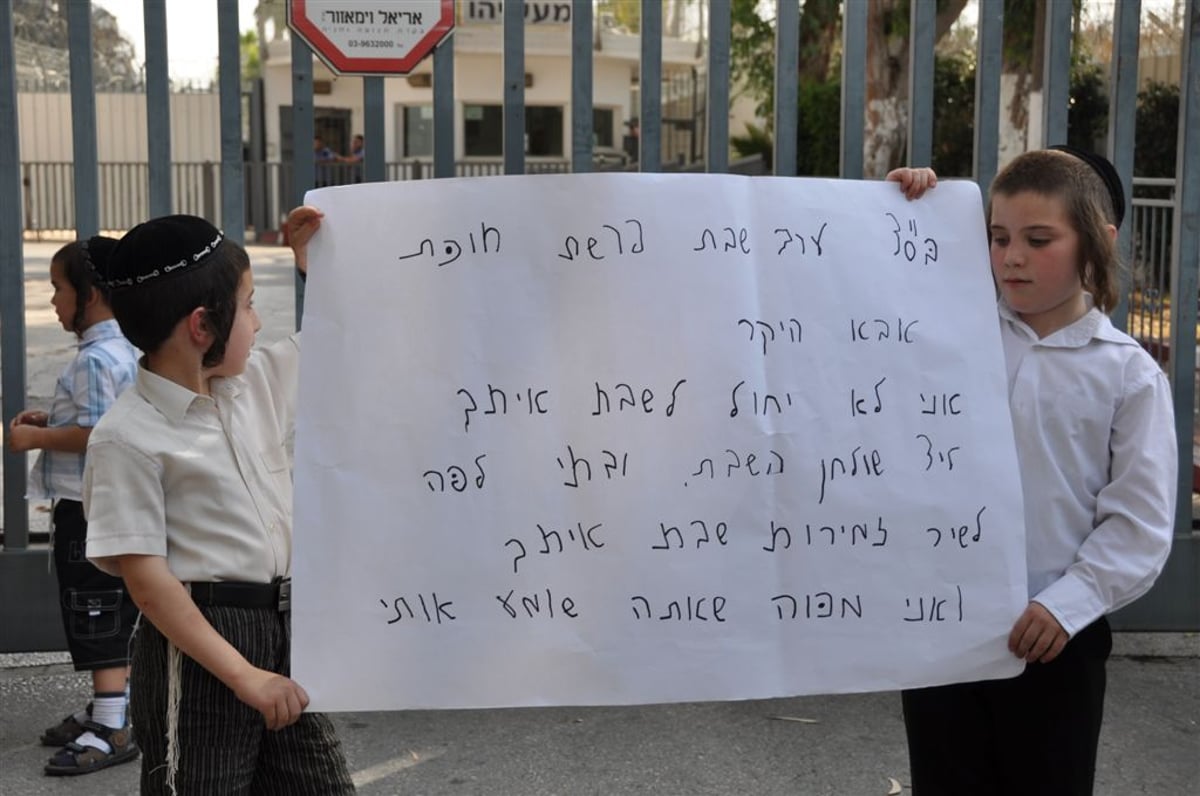 מעשיהו
אריאל וימאזור:
03-9632000
בס"ד ערב שבת פרשת חוקת
אבא היקר
אני לא יחול לשבת איתך
ליד שולחן השבת. ובתי לפה
לשיר זמירות שבת איתך
ואני מקוה שאתה שומע אותי